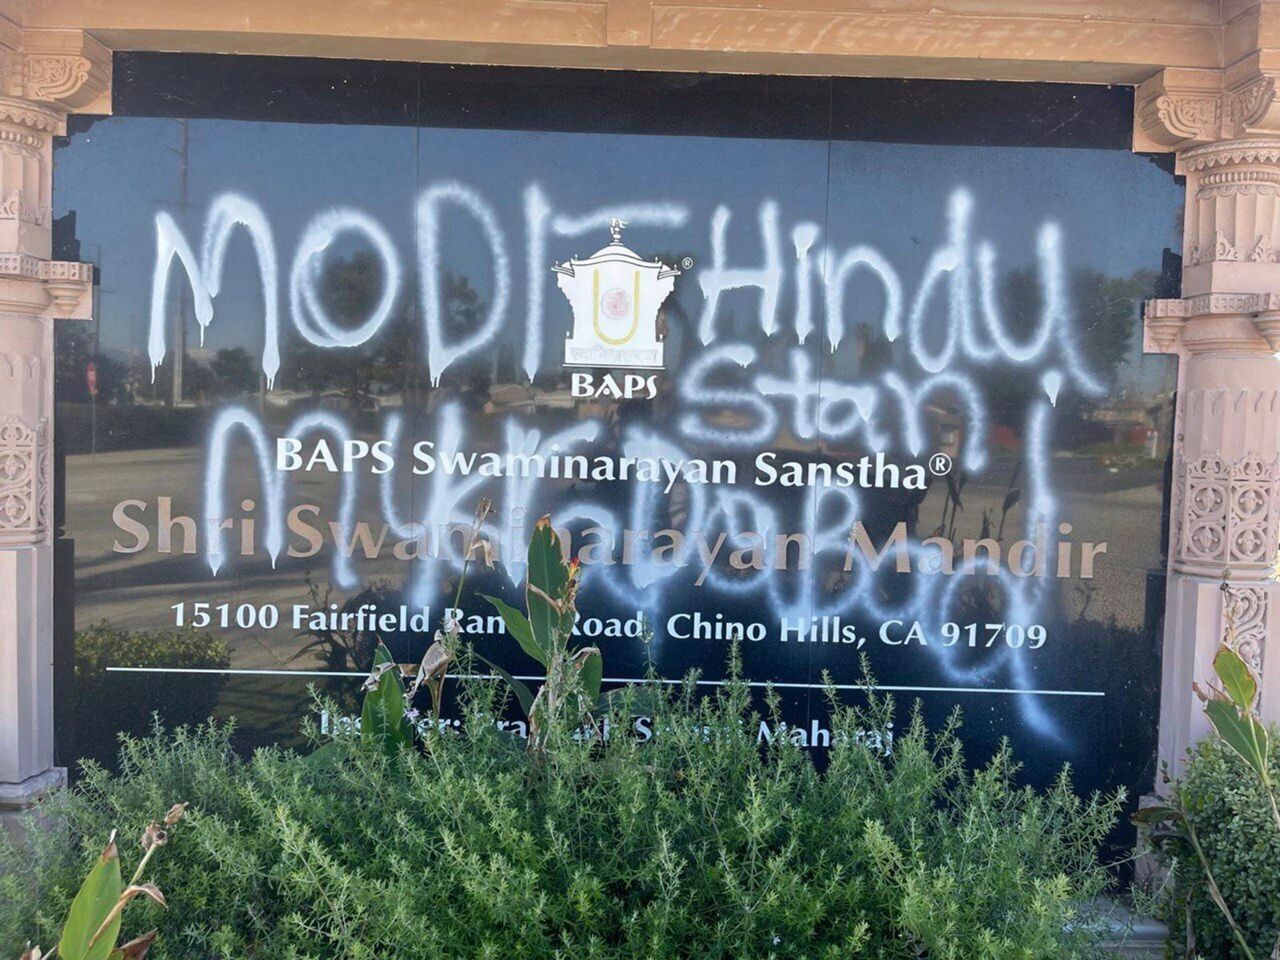 MODI Hindu
स्वामिनारायण
BAPS
Stani
BAPS Swaminarayan Sanstha®
Shri Swaminarayan Mandir
15100 Fairfield Ranch Road, Chino Hills, CA 91709
Swami Maharaj